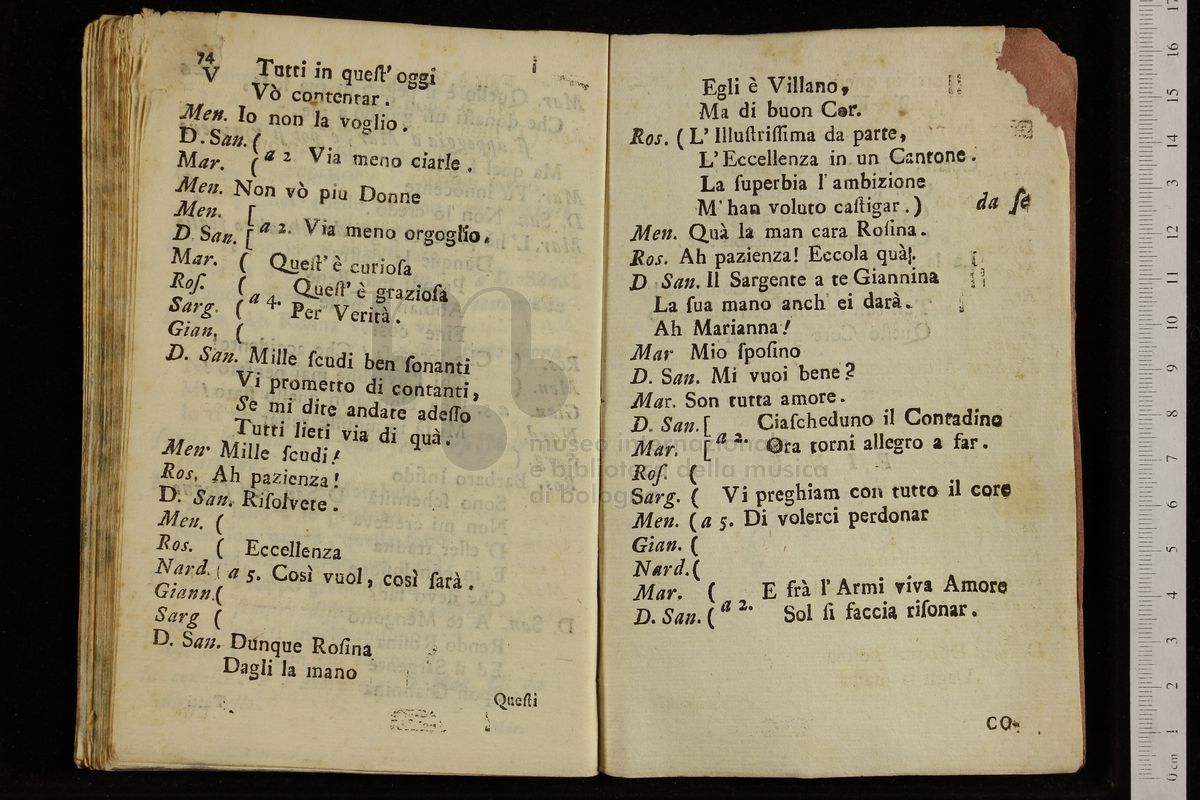 74
V
Tutti in queſt' oggi
Vò contentar.
Men. Io non la voglio.
D. San. (
Mar. ( a 2 Via meno ciarle.
Men. Non vò piu Donne
Men. [
D San. [ a 2. Via meno orgoglio.
Mar. ( Queſt' è curioſa
Roſ. ( Queſt' è grazioſa
Sarg. ( a 4. Per Verità.
Gian. (
D. San. Mille ſcudi ben ſonanti
Vi prometto di contanti,
Se mi dite andate adeſſo
Tutti lieti via di quà.
Men. Mille ſcudi!
Ros. Ah pazienza!
D. San. Riſolvete.
Men. (
Ros. ( Eccellenza
Nard. ( a 5. Così vuol, così ſarà.
Giann. (
Sarg (
D. San. Dunque Roſina
Dagli la mano
Queſti
Egli è Villano,
Ma di buon Cor.
Ros. (L' Illuſtriſſima da parte,
L' Eccellenza in un Cantone.
La ſuperbia l' ambizione
M' han voluto caſtigar.) da ſe
Men. Quà la man cara Roſina.
Ros. Ah pazienza! Eccola quà!.
D San. Il Sargente a te Giannina
La ſua mano anch' ei darà.
Ah Marianna!
Mar Mio ſpoſino
D. San. Mi vuoi bene?
Mar. Son tutta amore.
D. San. [ Ciaſcheduno il Contadino
Mar. [ a 2. Ora torni allegro a far.
Roſ. (
Sarg. ( Vi preghiam con tutto il core
Men. ( a 5. Di volerci perdonar
Gian. (
Nard. (
Mar. ( E frà l' Armi viva Amore
D. San. ( a 2. Sol ſi faccia riſonar.
CO-
museo internazionale
e biblioteca della musica
di bologna
0 cm 1 2 3 4 5 6 7 8 9 10 11 12 13 14 15 16 17